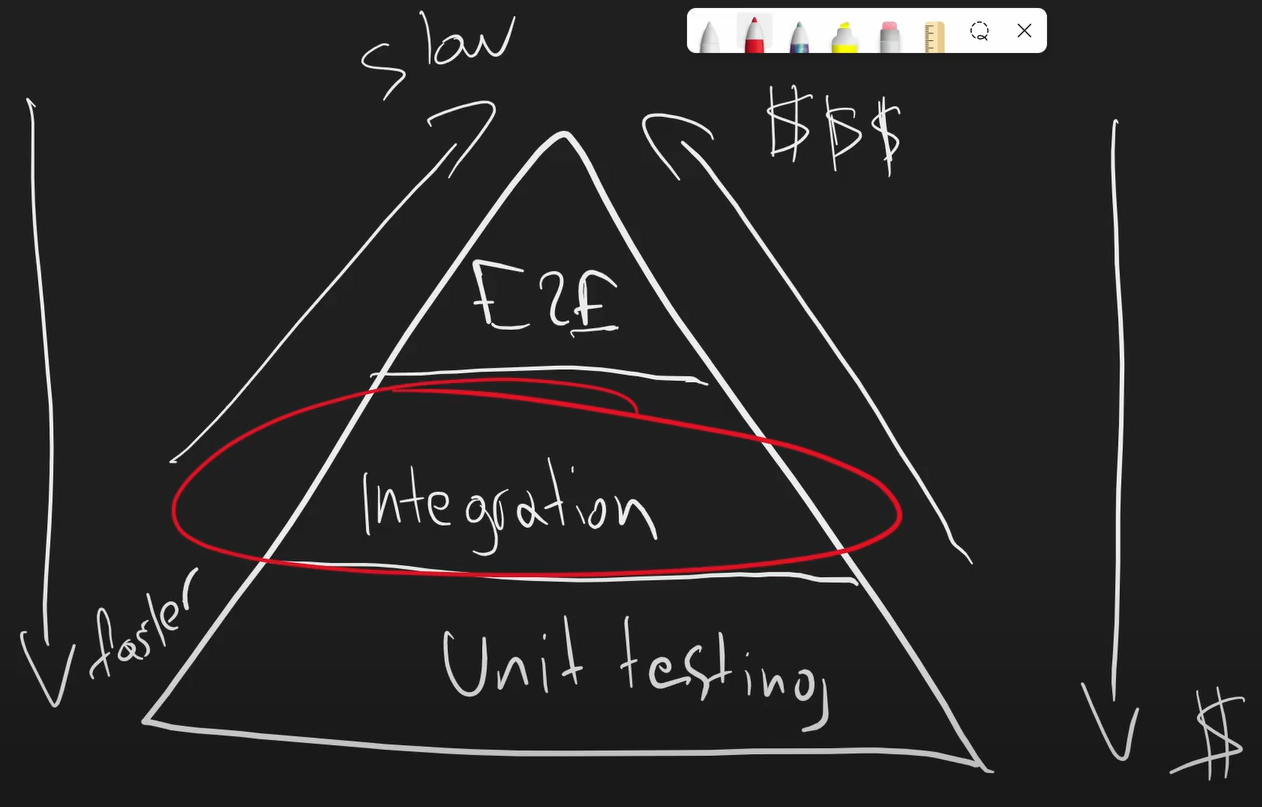 slow
$$$
E2E
Integration
faster
Unit testing
$